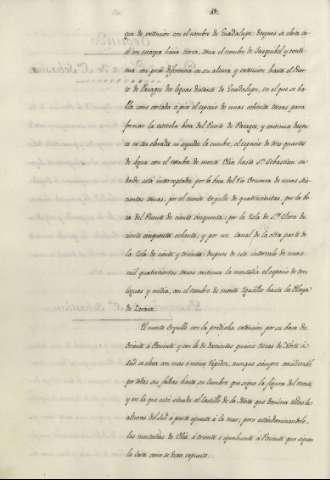 que de extension con el nombre de Guadalupe: despues se abate
un escarpe hacia tierra, toma el nombre de Jaizquibel y continua
con poca diferencia en su altura y extension hasta el Puerto
de Pasages dos leguas distante de Guadalupe, en el que se halla
como cortada á pico el espacio de unas ochenta toesas para
formar la estrecha boca del Puerto de Pasages, y continua despues
en su elevada ni aguda la cumbre, el espacio de tres quartos
de legua con el nombre de monte Ulia hasta Sn. Sebastian en
donde está interceptada por la boca del Rio Orumea de unas
toesas, por el monte Orgullo de quatrocientas, por la boca
del Puerto de ciento cinquenta: por la Isla de Sta. Clara de
ciento cinquenta ochenta; y por un Canal de la otra parte de
la Isla de ciento y treinta: despues de este intervalo de unas
mil quatrocientas toesas continua la montaña el espacio de tres
leguas y media, con el nombre de monte Igueldo hasta la Playa
de Zarauz.
El monte Orgullo con la predicha extension por su base de
Oriente á Poniente y con la de doscientas quince toesas de Norte á
Sud se eleva con mas ó menos rapidez, aunque siempre considerable
por todas sus faldas hasta su cumbre que sigue la figura del monte,
y en la que está situado el Castillo de la Mota que domina todas las
alturas del Sud ó parte opuesta á la mar; pero
las montañas de Ulia á oriente é Igueldo á Poniente que siguen
la costa como se dexa expuesto.